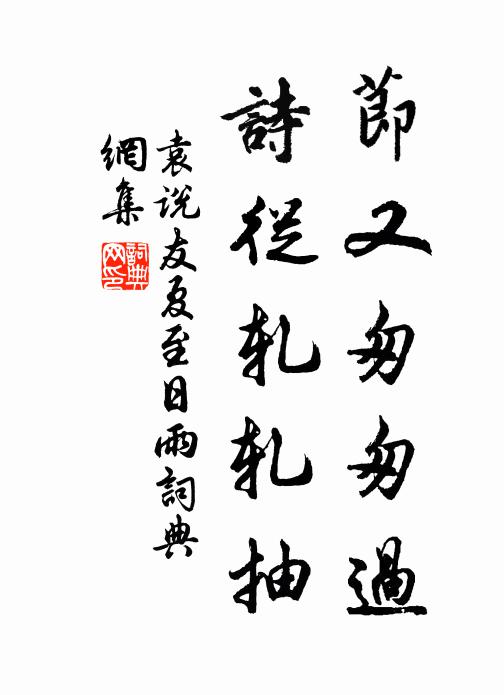 節又匆匆過
詩從軋軋抽
袁說友夏至日雨詞典
網集
詞典
網印